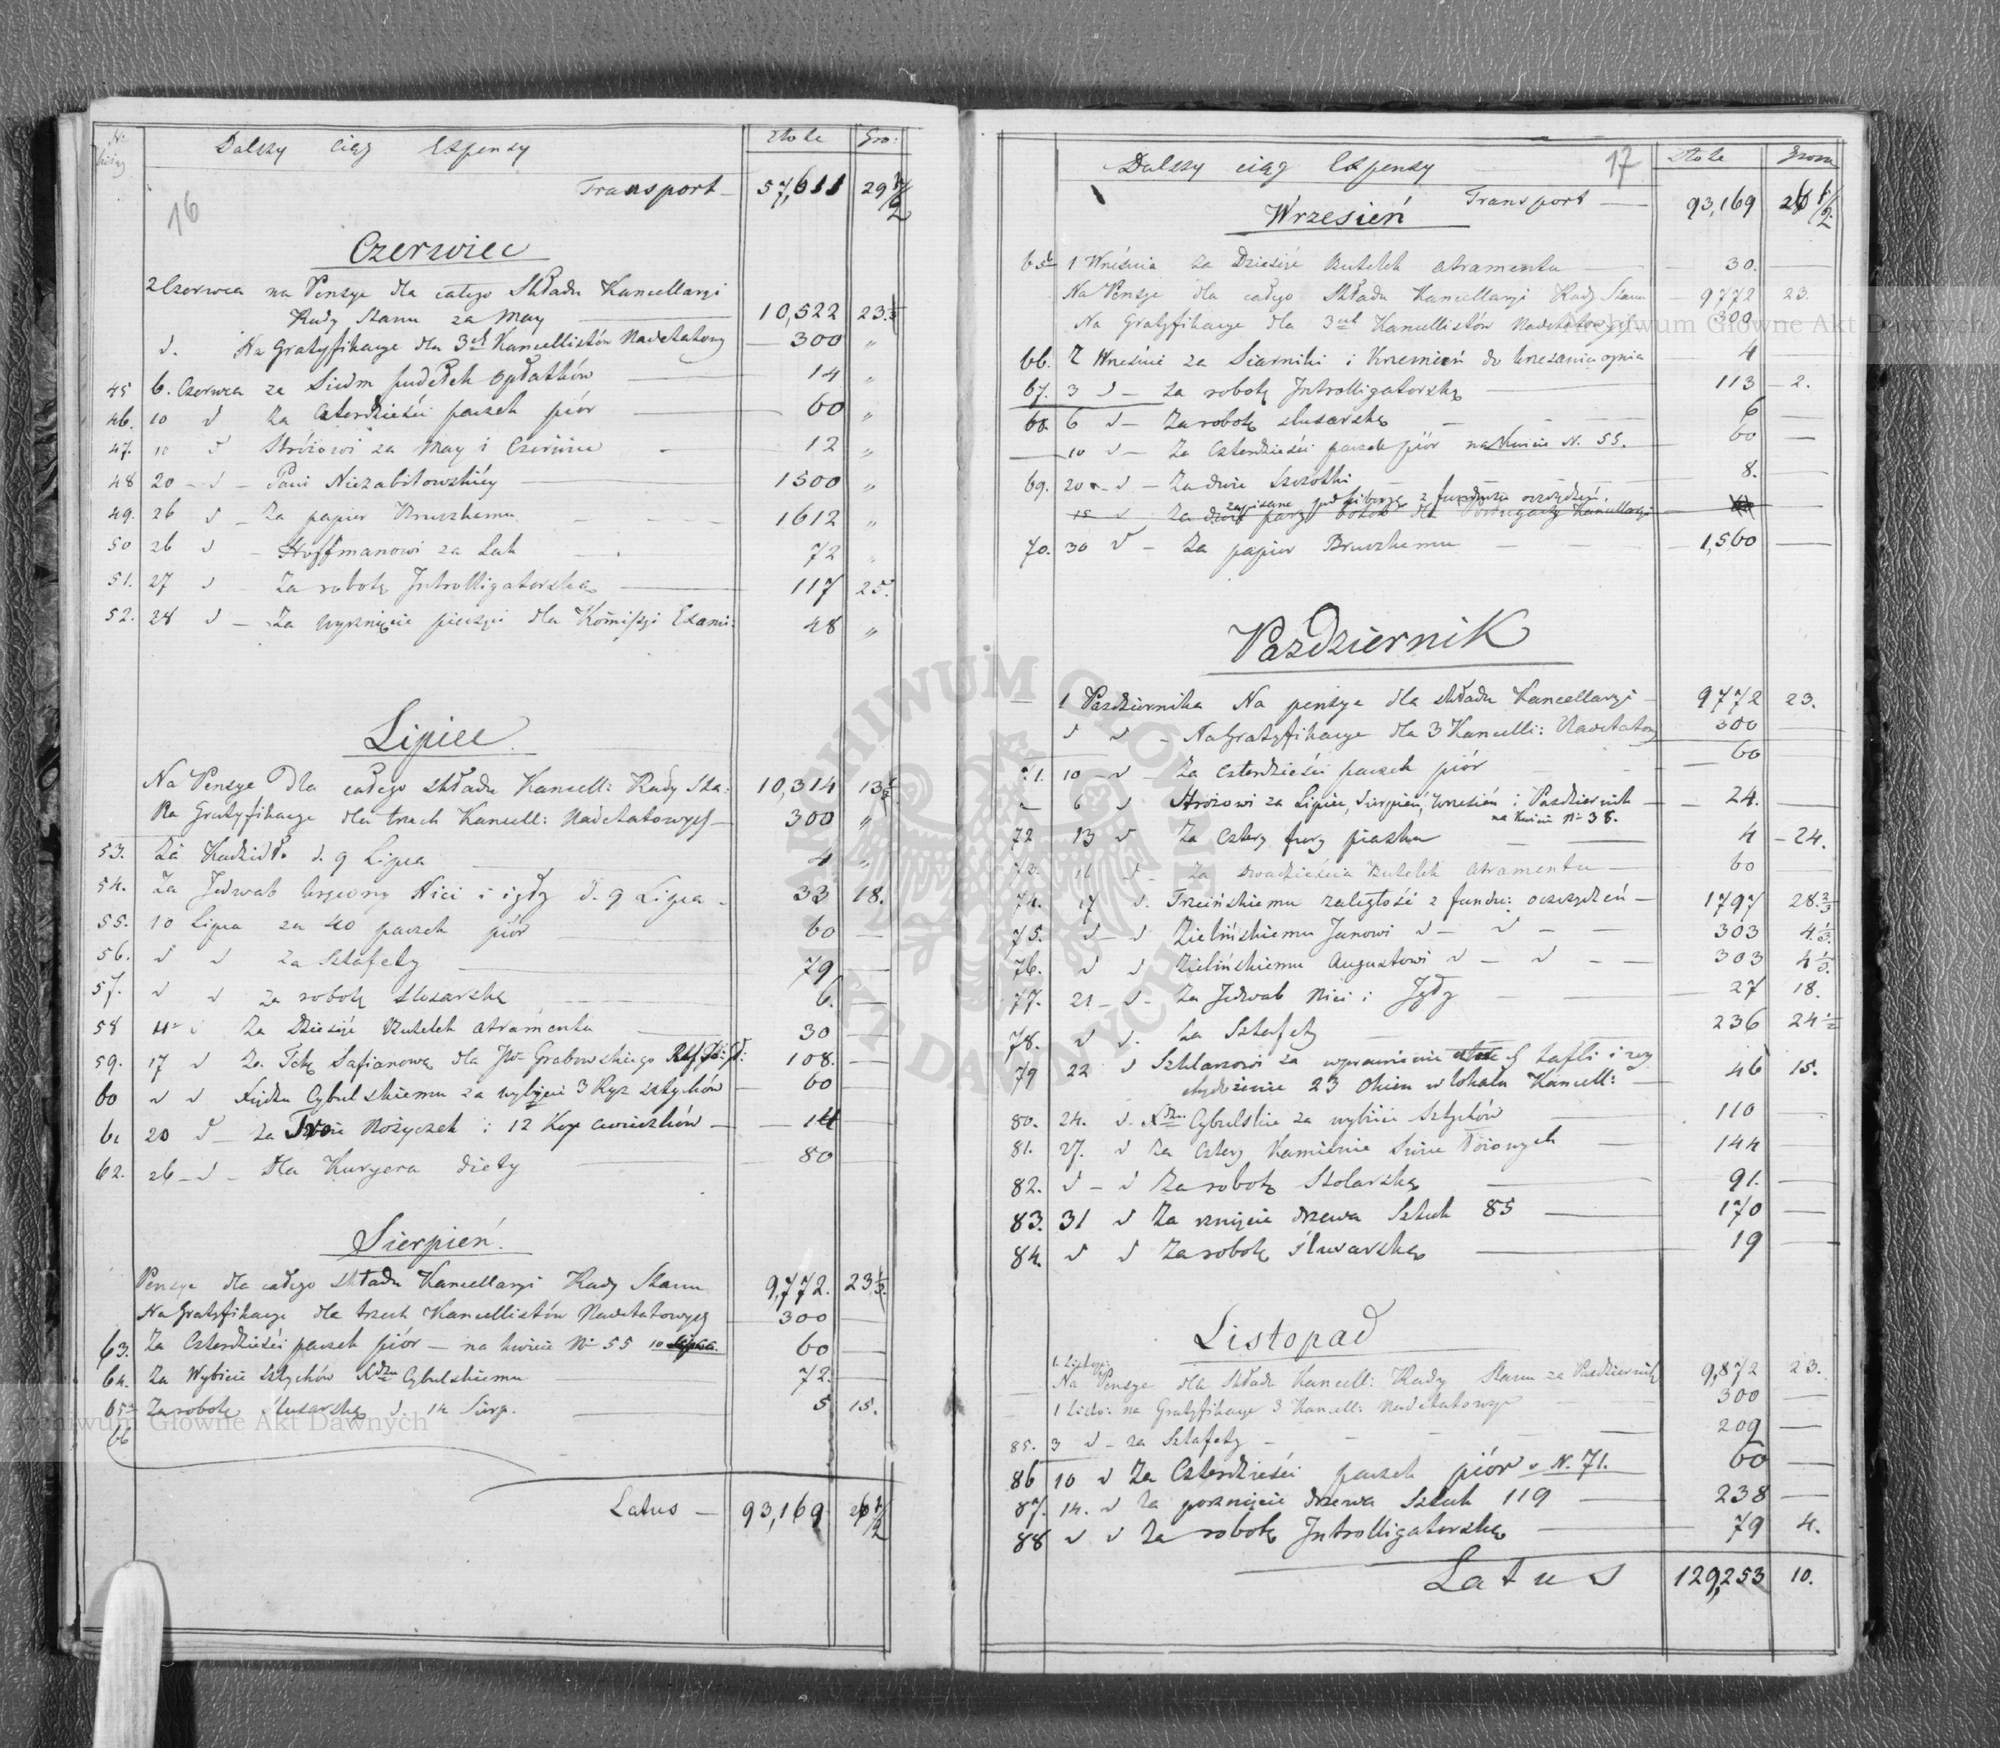 Dalszy ciąg Expensy Złote Gro:
16
Transport 57,611 29 1/2
Czerwiec
2 Czerwca na Pensye dla całego Składu Kancellaryi
Rady Stanu za May 10,522 23.
d. Na Gratyfikacye dla 3ch Kancellistów Nadetatowy 300 "
45 6. Czerwca za Siedm pudełek opłatków 14 "
46. 10 d Za Czterdzieści paczek piór 60 "
47. 10 d Stróżowi za May i Czerwiec 12 "
48 20 - d - Pani Niezabitowskiey 1500 "
49. 26 d - Za papier Bruszkemu 1612 "
50 26 d - Hoffmanowi za Lak 72 "
51. 27 d Za robotę Introlligatorską 117 25.
52. 28 d - Za wyrznięcie pieczęci dla Kommissyi Exami: 48 "
Lipiec
Na Pensye dla całego składu Kancell: Rady Sta: 10,314 13
Na Gratyfikacye dla trzech Kancell: Nadetatowych 300 "
53. Za Kadzidło d. 9 Lipca 4 "
54. Za Jedwab Nici i igły d. 9 Lipca 33 18.
55. 10 Lipca za 40 paczek piór 60
56. d d za Sztafety 79
57. d d za robotę slusarską 6.
58 11 d Za Dziesięć Butelek atramentu 30
59. 17 d Za Tekę Safianową dla JW. Grabowskiego 108.
60 d d Xiędzu Cybulskiemu za wybycie 3 Ryz sztychów 60
61 20 d - Za Troie Nożyczek i 12 Kop cwieczków 14
62. 26 - d - Dla Kuryera diety 80
Sierpień.
Pensye dla całego składu Kancellaryi Rady Stanu 9,772. 23
Na Gratyfikacye dla trzech Kancellistów Nadetatowych 300
63. Za Czterdzieści paczek piór - na kwicie No 55 10 Lipca. 60
64. Za Wybicie Sztychów Xdzu Cybulskiemu 72.
65 Za robotę Slusarską d. 14 Sierp. 5 15.
66
Latus 93,169 26 1/2
Dalszy ciąg Expensy 17 Złote Grosze
Transport 93,169 26 1/2
Wrzesień
65 1 Września za Dziesięć Butelek atramentu 30.
Na Pensye dla całego Składu Kancellaryi Rady Stanu 9772 23.
Na Gratyfikacye dla 3ech Kancellistów Nadetatowych 300
66. 2 Wrześnie za Siarniki i Krzemień do krzesania ognia 4
67. 3 d - Za robotę Introlligatorską 113 2.
68. 6 d - Za robotę slusarską 6
10 d - Za Czterdzieści paczek piór na kwicie N. 55. 60
69. 20 - d - Za dwie Szczotki 8.
zapisane z funduszu oszczędzeń.
15 d Za dwie pary botów dla Kancellaryi
70. 30 d - Za papier Bruszkemu 1,560
Pazdziernik
1 Pazdziernika Na pensye dla składu Kancellaryi 9772 23.
d d - Na Gratyfikacye dla 3 Kancelli: Nadetatowy 300
71. 10 - d - Za Czterdzieści paczek piór 60
- 6 d Stróżowi za Lipiec, Sierpień, Wrzesień i Pazdziernik 24.
na kwicie No 38.
72 13 d Za Cztery fury piasku 4 24.
73. 11 d - Za Dwadzieścia Butelek atramentu 60
74. 17 d. Trzcińskiemu zaległości z fundu: oszczędzeń 1797 28. 2/3
75. d - d Zielińskiemu Janowi d - d 303 4. 1/3
76. d d Zielińskiemu Augustowi d - d 303 4 1/3.
77. 21 - d - Za Jedwab Nici i Igły 27 18.
78. d d. Za Sztafety 236 24 1/2
79 22 d Szklarzowi za wprawienie tafli i
23 Okien w lokalu Kancell: 46 15.
80. 24. d. Xdzu Cybulskie za wybicie Sztychów 110
81. 27. d Za Cztery Kamienie Świec Łoiowych 144
82. d - d Za robotę Stolarską 91.
83. 31 d Za rznięcie drzewa Sztuk 85 170
84. d d Za robotę slusarską 19
Listopad
1. Listop:
Na Pensye dla Składu Kancell: Rady Stanu za Pazdziernik 9,872 23.
1 Listo: na Gratyfikacye 3 Kancell: Nadetatowye 300
85. 3 d - za Sztafety 209
86 10 d Za Czterdzieści paczek piór N. 71. 60
87. 14. d Za porznięcie drzewa Sztuk 119 238
88 d d Za robotę Introlligatorską 79 4.
Latus 129,253 10.
Archiwum Główne Akt Dawnych